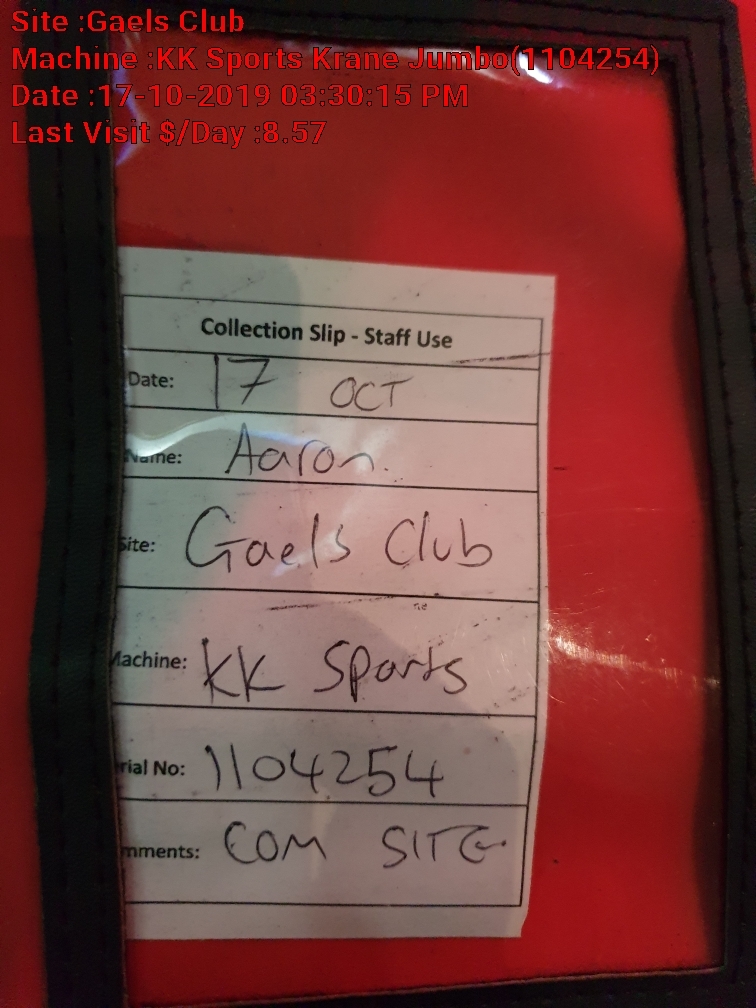 Site :Gaels Club
Machine :KK Sports Krane Jumbo(1104254)
Date :17-10-2019 03:30:15 PM
Last Visit $/Day :8.57
Collection Slip - Staff Use
Date: 17 OCT
Name: Aaron.
Site: Gaels Club
Machine: KK Sports
rial No: 1104254
mments: COM SITE